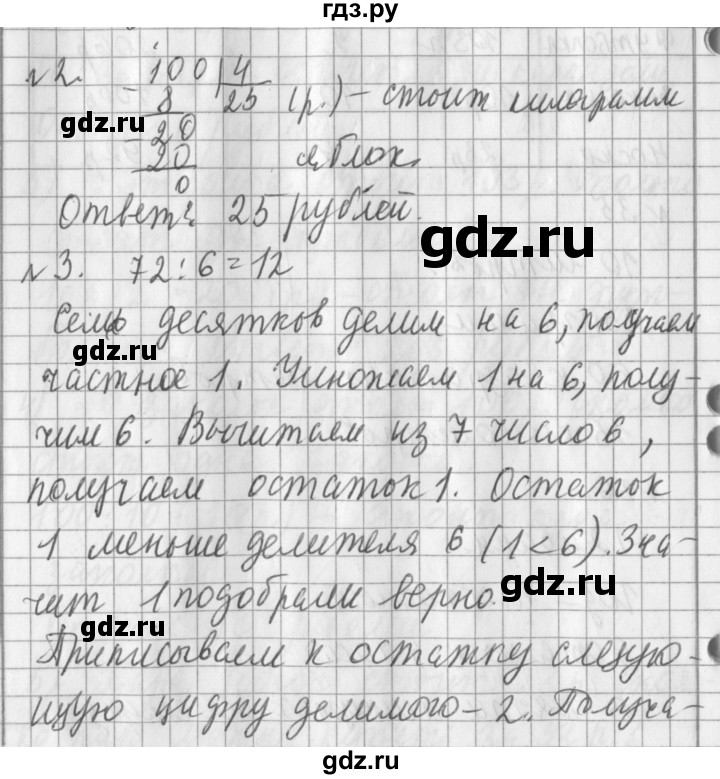 гдз.ру
№2. 100 | 4
- 8 25 (р.) - стоит килограмм
gdz.ru
- 20
20 яблок.
0
Ответ: 25 рублей.
gdz.ru
№3. 72 : 6 = 12
Семь десятков делим на 6, получаем
gdz.ru
частное 1. Умножаем 1 на 6, полу-
чим 6. Вычитаем из 7 число 6,
получаем остаток 1. Остаток
1 меньше делителя 6 (1 < 6). Зна-
gdz.ru
чит 1 подобрали верно.
gdz.ru
Приписываем к остатку следую-
щую цифру делимого - 2. Получа-
gdz.ru